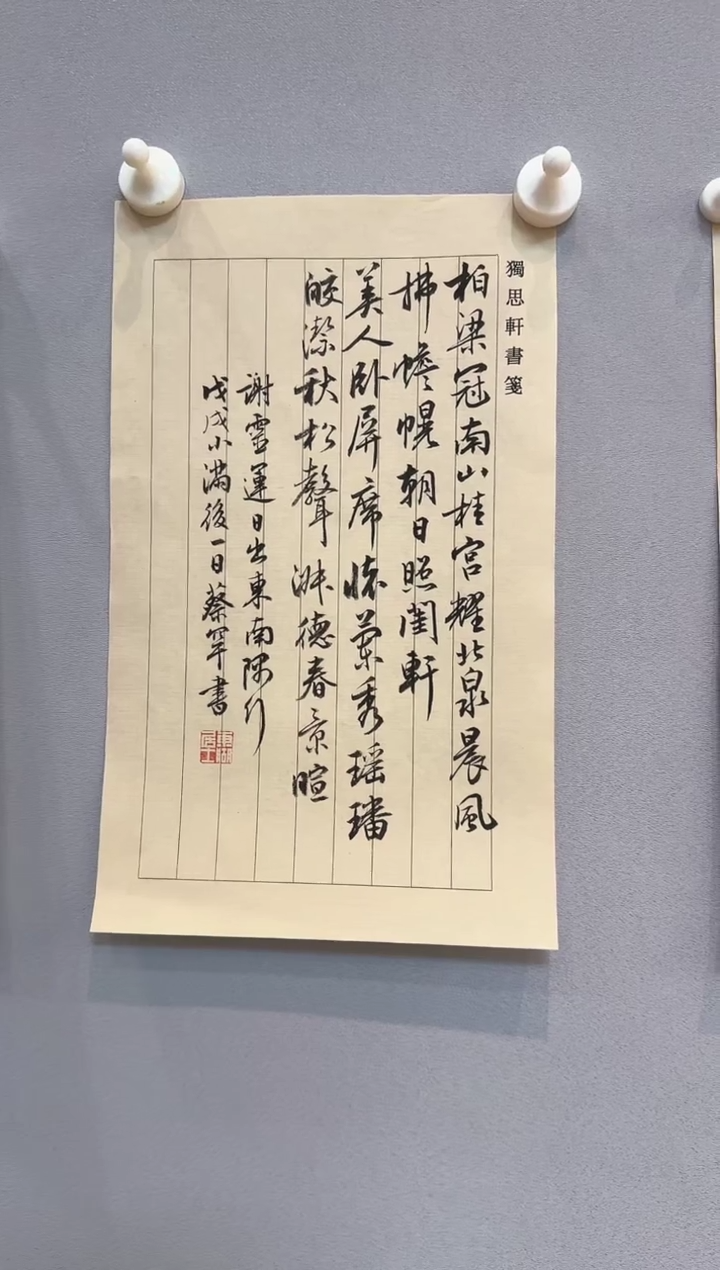 獨思軒書箋
柏梁冠南山桂宮耀北泉晨風
拂幨幌朝日照閨軒
美人卧屏席懷蘭秀瑶璠
皎潔秋松聲淋德春景暄
謝靈運日出東南隅行
戊戌小滿後一日蔡罕書